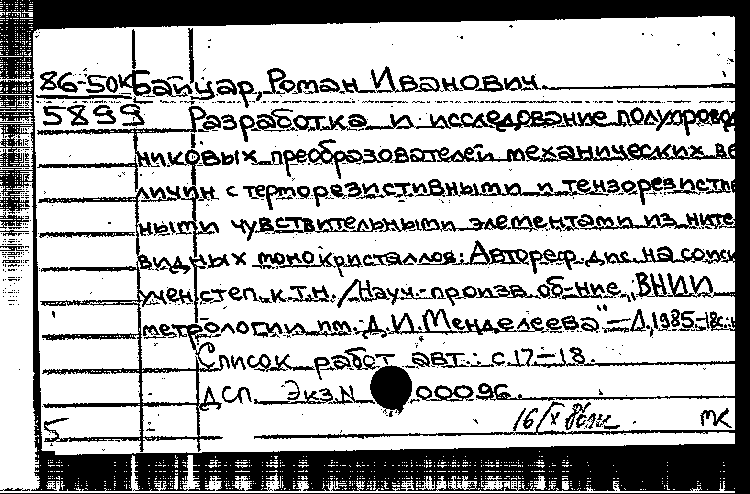 86-50к Байцар, Роман Иванович.
5899 Разработка и исследование полупровод
никовых преобразователей механических ве
личин с терморезистивными и тензорезистив
ными чувствительными элементами из ните
видных монокристаллов: Автореф. дис. на соиск
учен. степ. к.т.н. / Науч.-произв. об-ние "ВНИИ
метрологии им. Д.И. Менделеева" – Л, 1985 – 18с.
Список работ авт.: с. 17–18.
ДСП. Экз. N 00096.
5 16/X 86 МК